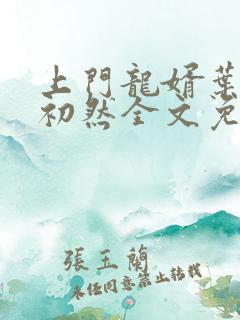 上門龍婿葉
初然全文免
張玉蘭
未經同意禁止轉載